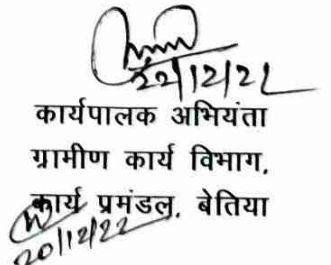 22/12/22
कार्यपालक अभियंता
ग्रामीण कार्य विभाग,
कार्य प्रमंडल, बेतिया
20/12/22